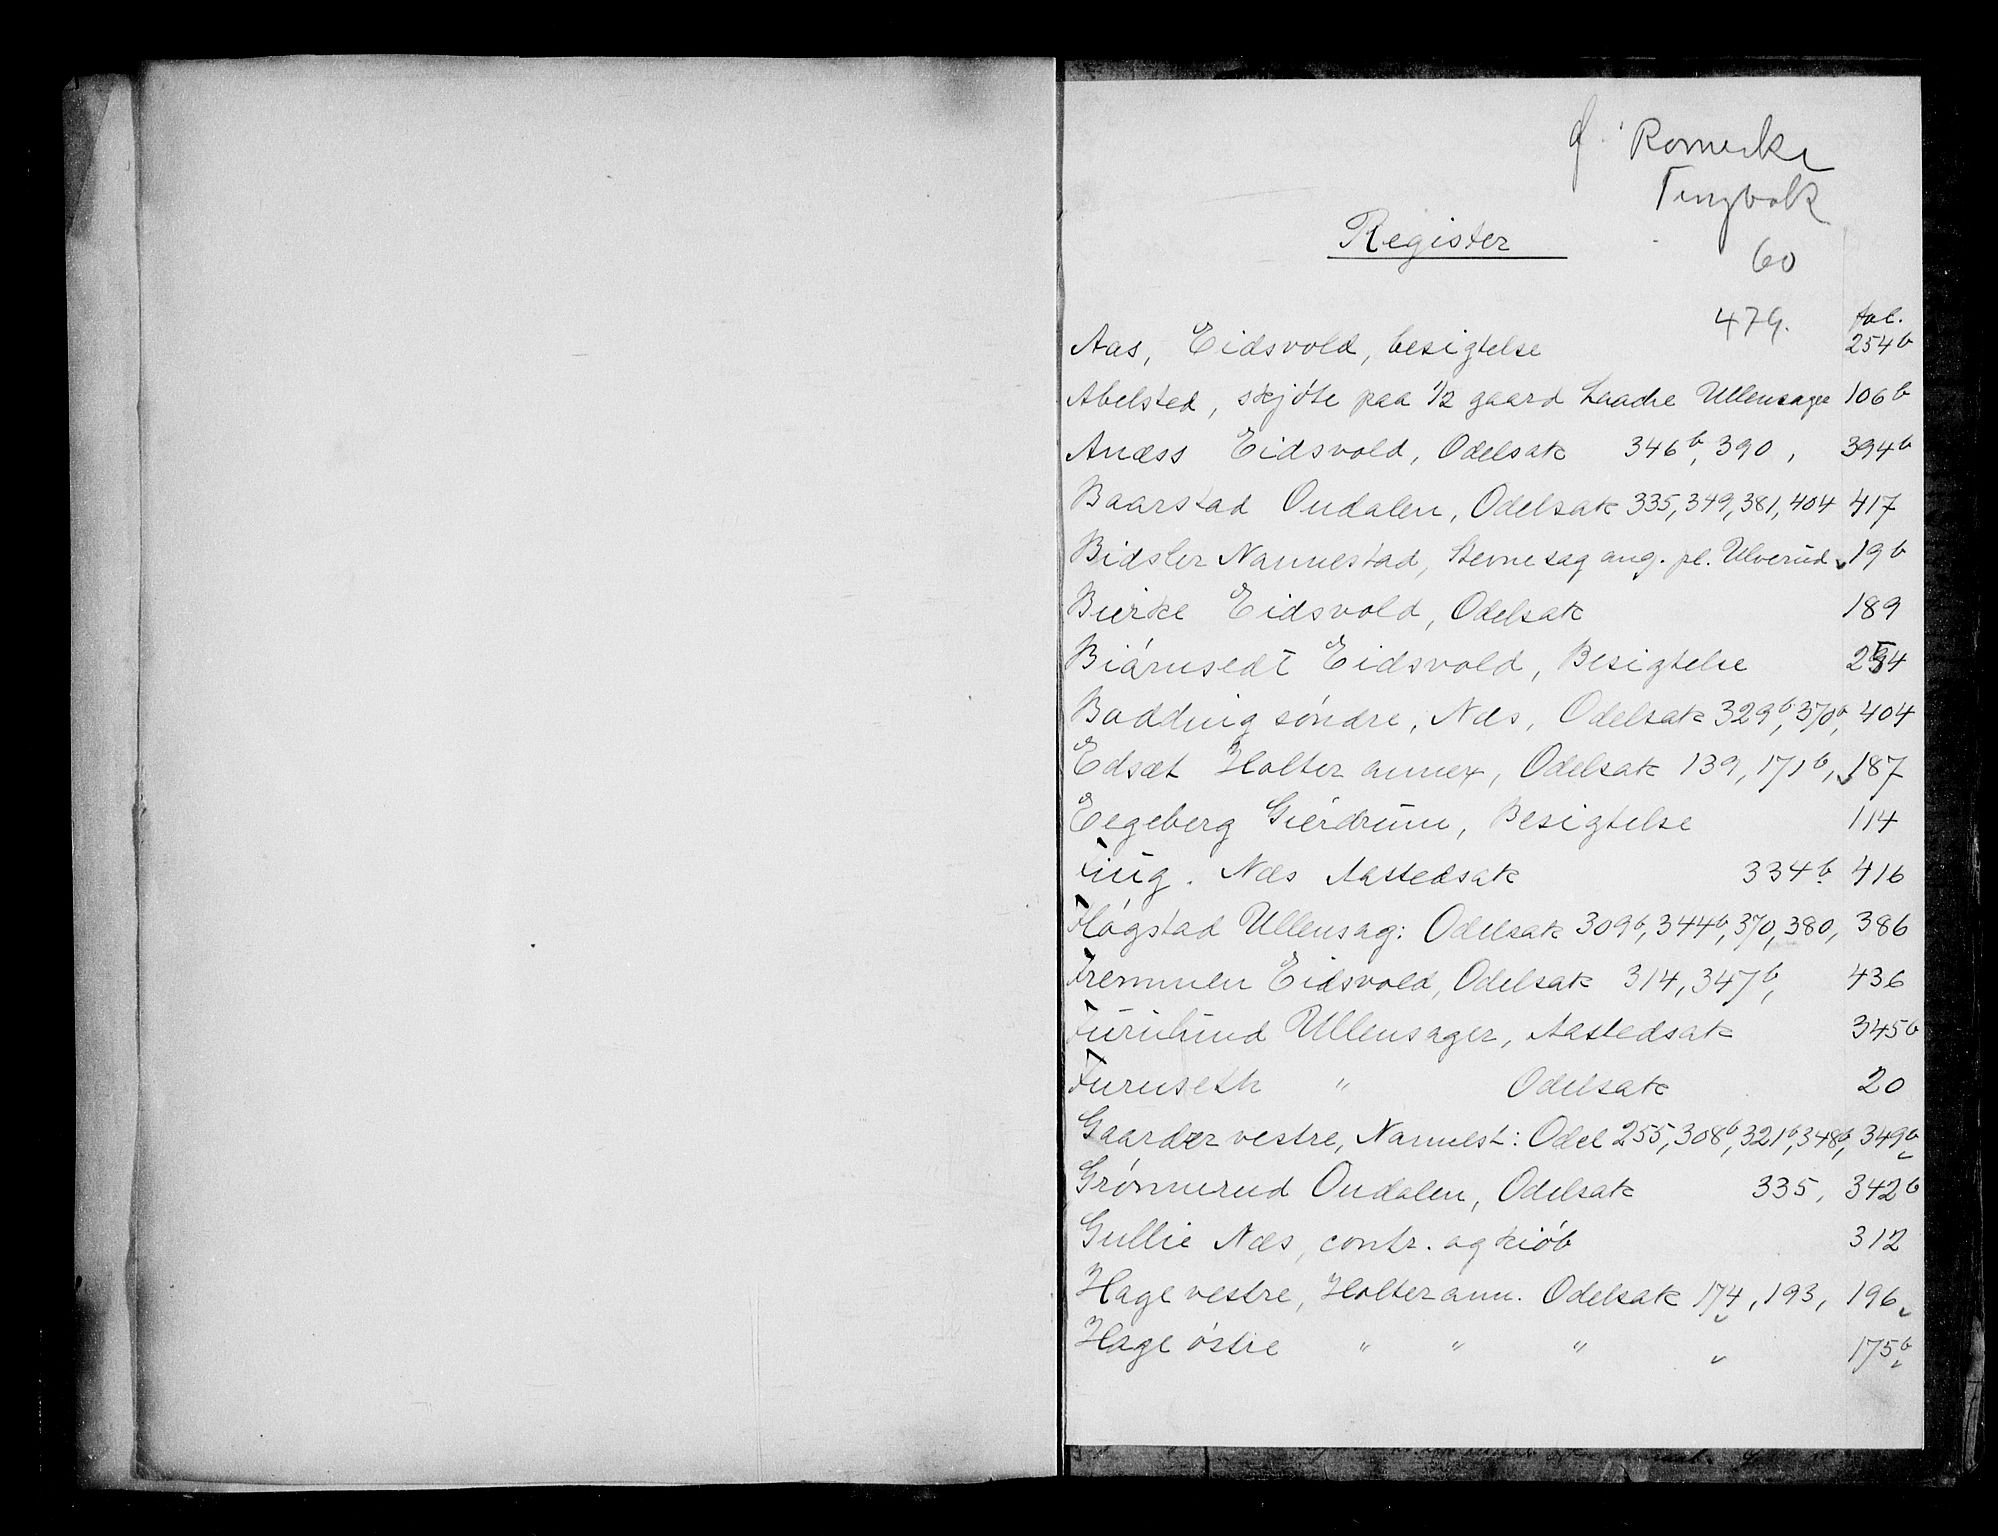 Ø. Romerike
Tingbok
60
Register
479.
fol.
Aas, Eidsvold, besigtelse 254b
Abelsted, skjöte paa 1/2 gaard Laache Ullensager 106b
Anæss Eidsvold, Odelsak 346b, 390, 394b
Baarstad Oudalen, Odelsak 335, 349, 381, 404 417
Bidsler Nannestad, Stevnesag ang. pl. Ulverud 19b
Bierke Eidsvold, Odelsak 189
Biörnsedt Eidsvold, Besigtelse 254
Bodding söndre, Næs, Odelsak 329b, 370b, 404
Edsæt Holter annex, Odelsak 139, 171b, 187
Eegeberg Gierdrum, Besigtelse 114
Fiug. Næs Aastedsak 334b 416
Flögstad Ullensag: Odelsak 309b, 344b, 370, 380, 386
Fremmen Eidsvold, Odelsak 314, 347b, 436
Furulund Ullensager, Aastedsak 345b
Furuseth " Odelsak 20
Gaarder vestre, Nannest: Odel 255, 308b, 321b, 348b, 349b
Grönnerud Oudalen, Odelsak 335, 342b
Gullie Næs, contr. og kiöb 312
Hage vestre, Holter ann. Odelsak 174, 193, 196
Hage östre " " " 175b